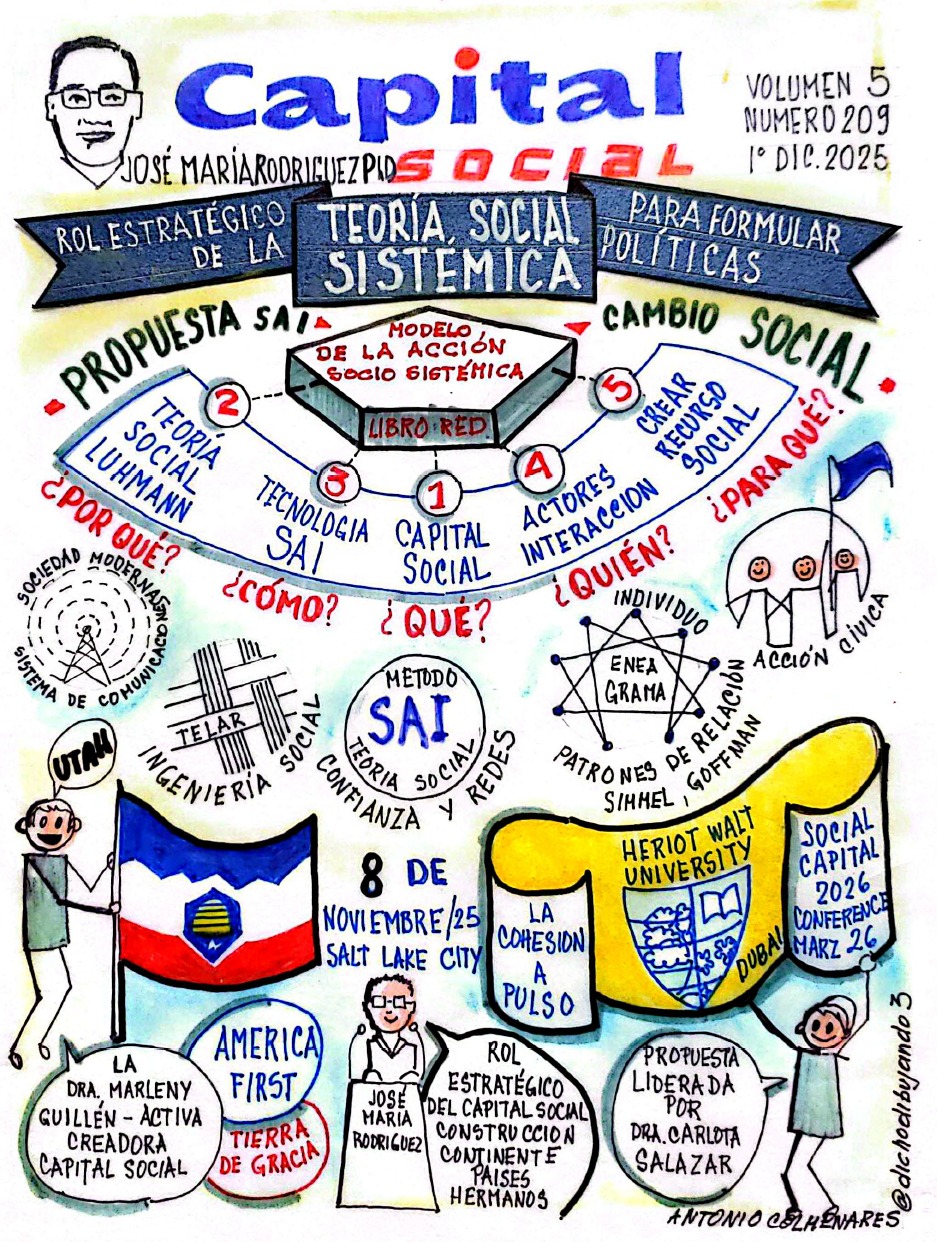 Capital
social
JOSÉ MARÍA RODRIGUEZ PhD
VOLUMEN 5
NUMERO 209
1° DIC. 2025
ROL ESTRATÉGICO
DE LA
TEORÍA SOCIAL
SISTÉMICA
PARA FORMULAR
POLÍTICAS
PROPUESTA SAI
CAMBIO SOCIAL
MODELO
DE LA ACCIÓN
SOCIO SISTÉMICA
LIBRO RED
2
3
1
4
5
TEORÍA
SOCIAL
LUHMANN
TECNOLOGIA
SAI
CAPITAL
SOCIAL
ACTORES
INTERACCION
CREAR
RECURSO
SOCIAL
¿POR QUÉ?
¿CÓMO?
¿QUÉ?
¿QUIÉN?
¿PARA QUÉ?
SOCIEDAD MODERNA
SISTEMA DE COMUNICACION
TELAR
INGENIERÍA SOCIAL
METODO
SAI
TEORIA SOCIAL
CONFIANZA Y REDES
INDIVIDUO
ENEA
GRAMA
PATRONES DE RELACIÓN
SIMMEL, GOFFMAN
ACCIÓN CÍVICA
UTAH
8 DE
NOVIEMBRE/25
SALT LAKE CITY
LA
COHESION
A
PULSO
HERIOT WALT
UNIVERSITY
DUBAI
SOCIAL
CAPITAL
2026
CONFERENCE
MARZ 26
LA
DRA. MARLENY
GUILLÉN - ACTIVA
CREADORA
CAPITAL SOCIAL
AMERICA
FIRST
TIERRA
DE GRACIA
JOSÉ
MARIA
RODRIGUEZ
ROL
ESTRATÉGICO
DEL CAPITAL SOCIAL
CONSTRUCCION
CONTINENTE
PAISES
HERMANOS
PROPUESTA
LIDERADA
POR
DRA. CARLOTA
SALAZAR
@dichodibujando3
ANTONIO COLMENARES